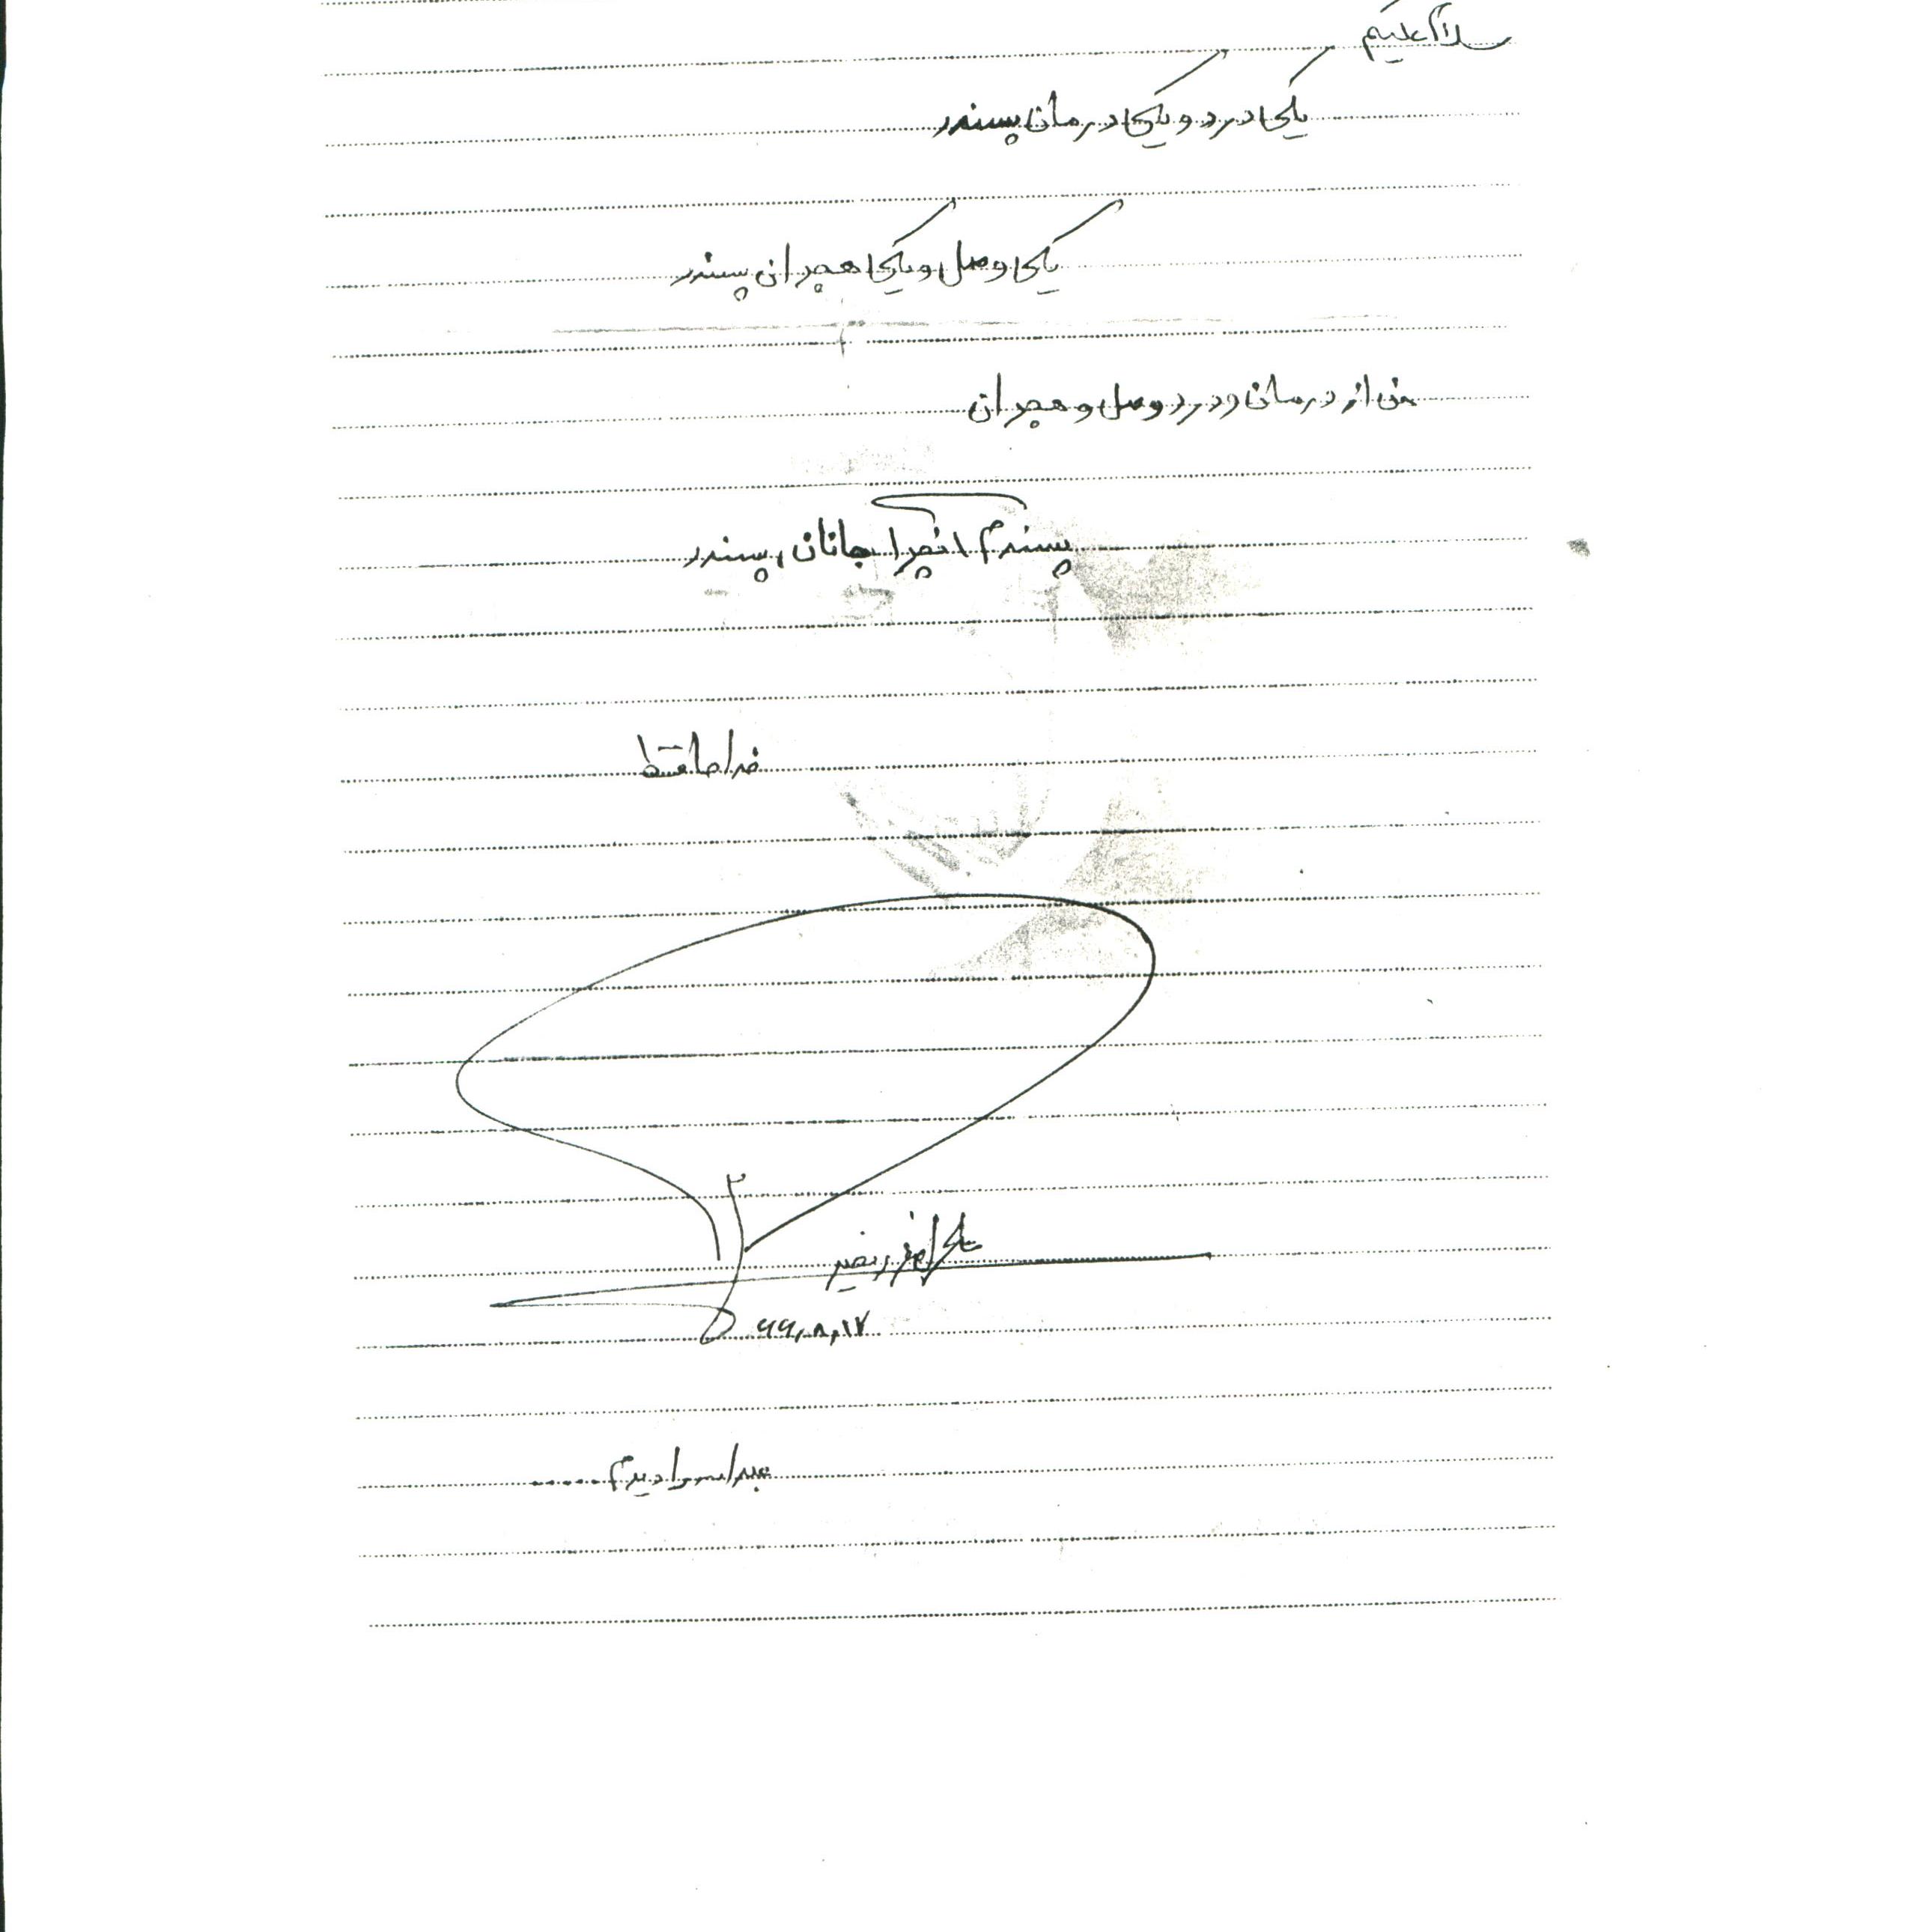 سلام علیکم
یکی درد و یکی درمان پسندد
یکی وصل و یکی هجران پسندد
من از درمان و درد و وصل و هجران
پسندم آنچه را جانان پسندد
خداحافظ
۹۹,۸,۱۷